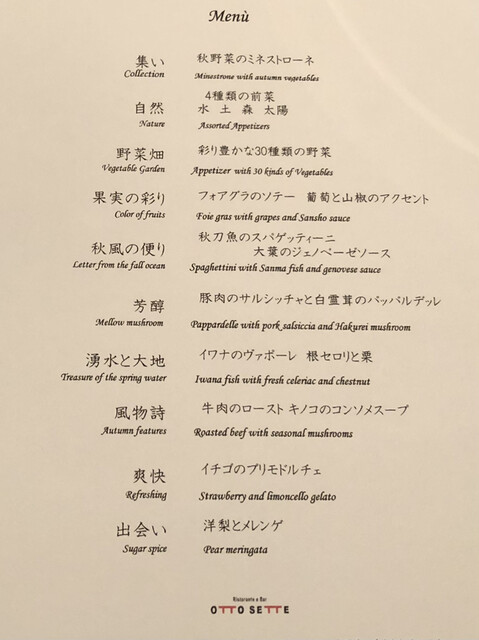 Menù
集い 秋野菜のミネストローネ
Collection Minestrone with autumn vegetables
4種類の前菜
自然 水 土 森 太陽
Nature Assorted Appetizers
野菜畑 彩り豊かな30種類の野菜
Vegetable Garden Appetizer with 30 kinds of Vegetables
果実の彩り フォアグラのソテー 葡萄と山椒のアクセント
Color of fruits Foie gras with grapes and Sansho sauce
秋風の便り 秋刀魚のスパゲッティーニ
大葉のジェノベーゼソース
Letter from the fall ocean Spaghettini with Sanma fish and genovese sauce
芳醇 豚肉のサルシッチャと白霊茸のパッパルデッレ
Mellow mushroom Pappardelle with pork salsiccia and Hakurei mushroom
湧水と大地 イワナのヴァポーレ 根セロリと栗
Treasure of the spring water Iwana fish with fresh celeriac and chestnut
風物詩 牛肉のロースト キノコのコンソメスープ
Autumn features Roasted beef with seasonal mushrooms
爽快 イチゴのプリモドルチェ
Refreshing Strawberry and limoncello gelato
出会い 洋梨とメレンゲ
Sugar spice Pear meringata
Ristorante e Bar
OTTO SETTE